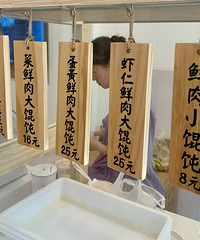 菜鲜肉大馄饨
16元
蛋黄鲜肉大馄饨
25元
虾仁鲜肉大馄饨
25元
鲜肉小馄饨
8元